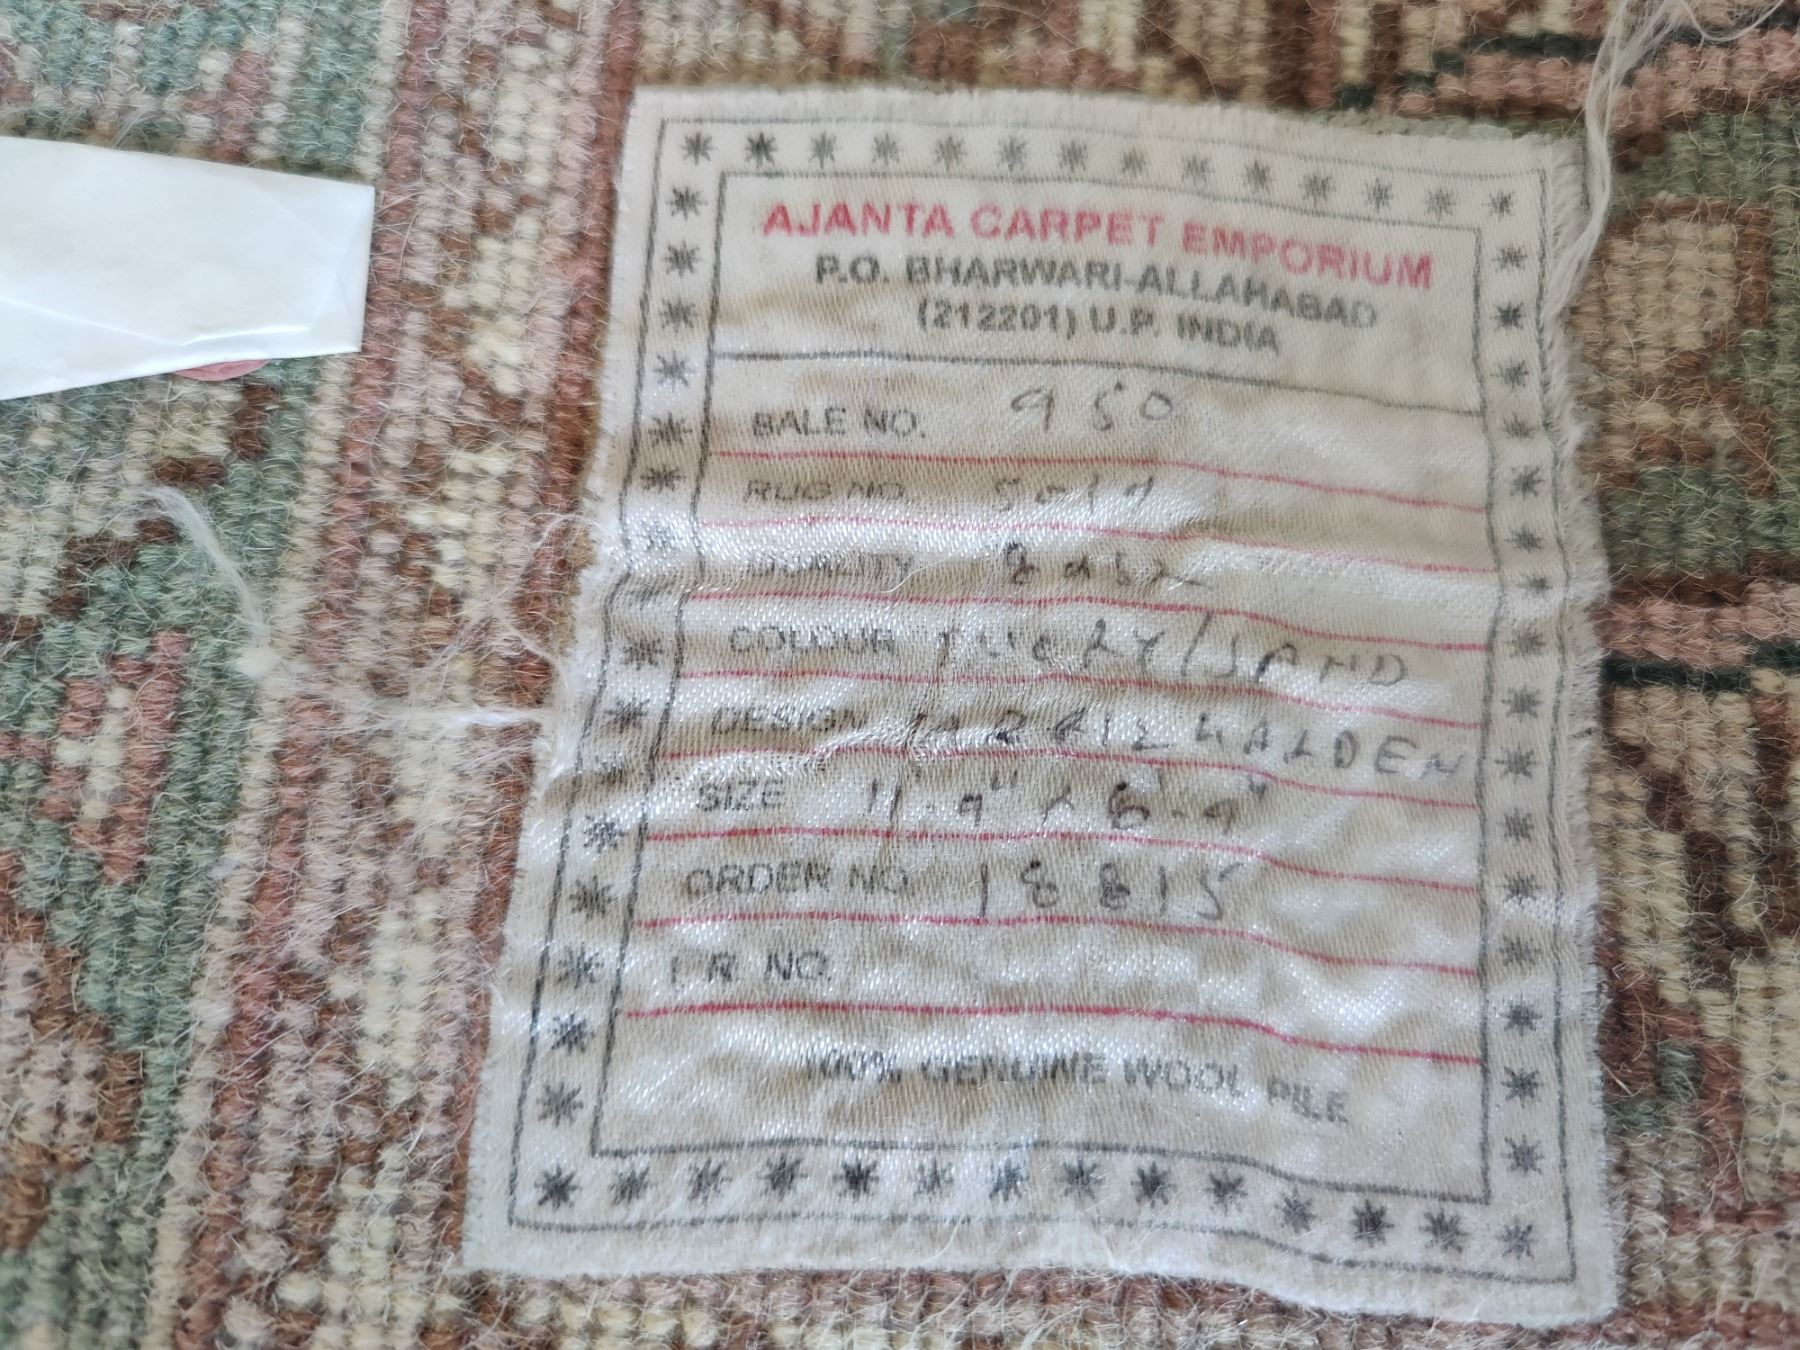 AJANTA CARPET EMPORIUM
P.O. BHARWARI-ALLAHABAD
(212201) U.P. INDIA
BALE NO. 950
RUG NO.
QUALITY
COLOUR /SAND
DESIGN
SIZE 11'-9" x 8'-9"
ORDER NO. 18815
I R NO.
100% GENUINE WOOL PILE